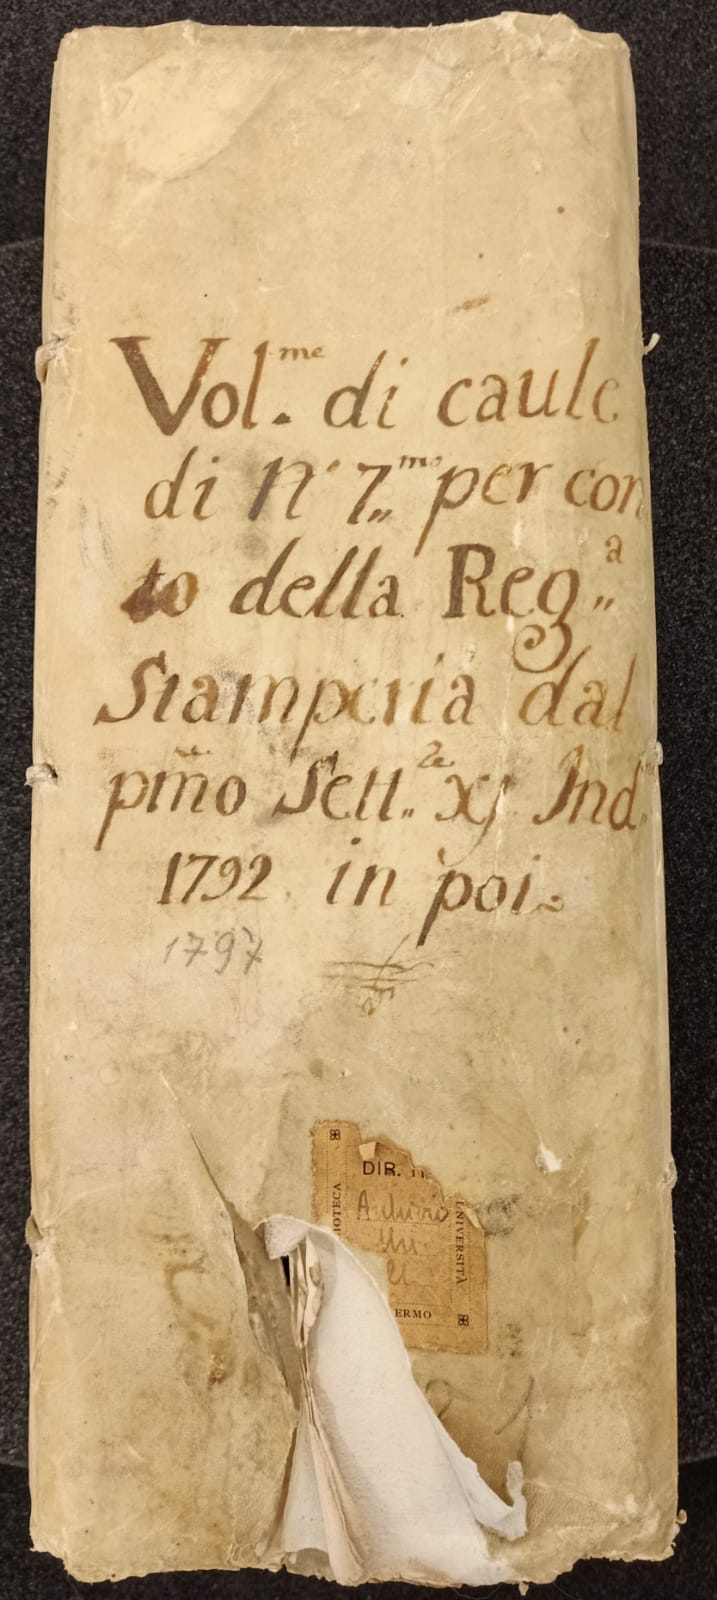 Vol.me di caule
di N° 7.mo per con
to della Reg.a
Stamperia dal
pmo Sett.e xj Ind.
1792 in poi.
1797
DIR.
IOTECA
UNIVERSITÀ
ERMO